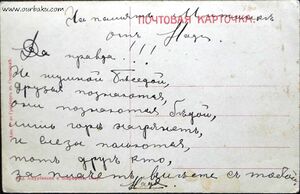 www.ourbaku.com
На память М
ПОЧТОВАЯ КАРТОЧКА.
отъ Нади
Да правда!!!
Не шумной бесѣдой,
друзья познаются,
они познаются бѣдой,
лишь горе нагрянетъ,
и слезы польются,
тотъ другъ кто,
заплачетъ вместе съ тобой
Надя